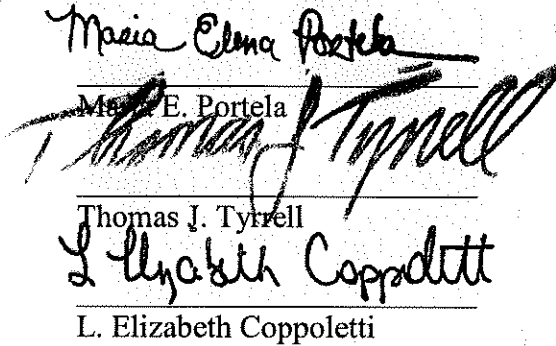 Maria Elena Portela
Maria E. Portela
Thomas J Tyrrell
Thomas J. Tyrrell
L Elizabeth Coppoletti
L. Elizabeth Coppoletti